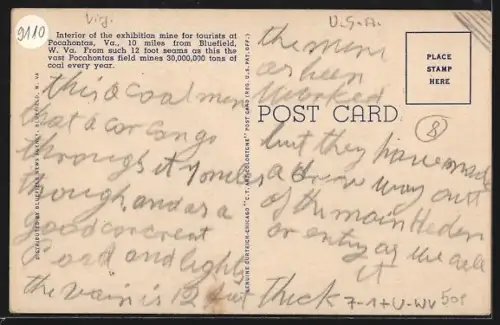 9110
Vig.
U.S.A.
Interior of the exhibition mine for tourists at
Pocahontas, Va., 10 miles from Bluefield,
W. Va. From such 12 foot seams as this the
vast Pocahontas field mines 30,000,000 tons of
coal every year.
DISTRIBUTED BY BLUEFIELD NEWS AGENCY, BLUEFIELD, W. VA
this a coal men
that a car can go
through it
though and as a
good concreat
Road and lights
the vain is 12 fut
GENUINE CURTEICH-CHICAGO "C.T. ART-COLORTONE" POST CARD (REG. U.S. PAT. OFF.)
POST CARD
PLACE
STAMP
HERE
the mine
as been
Worked
but they have made
a drive way out
of the main
or entry as we call
it
thick
8
7-1+U-WV
501